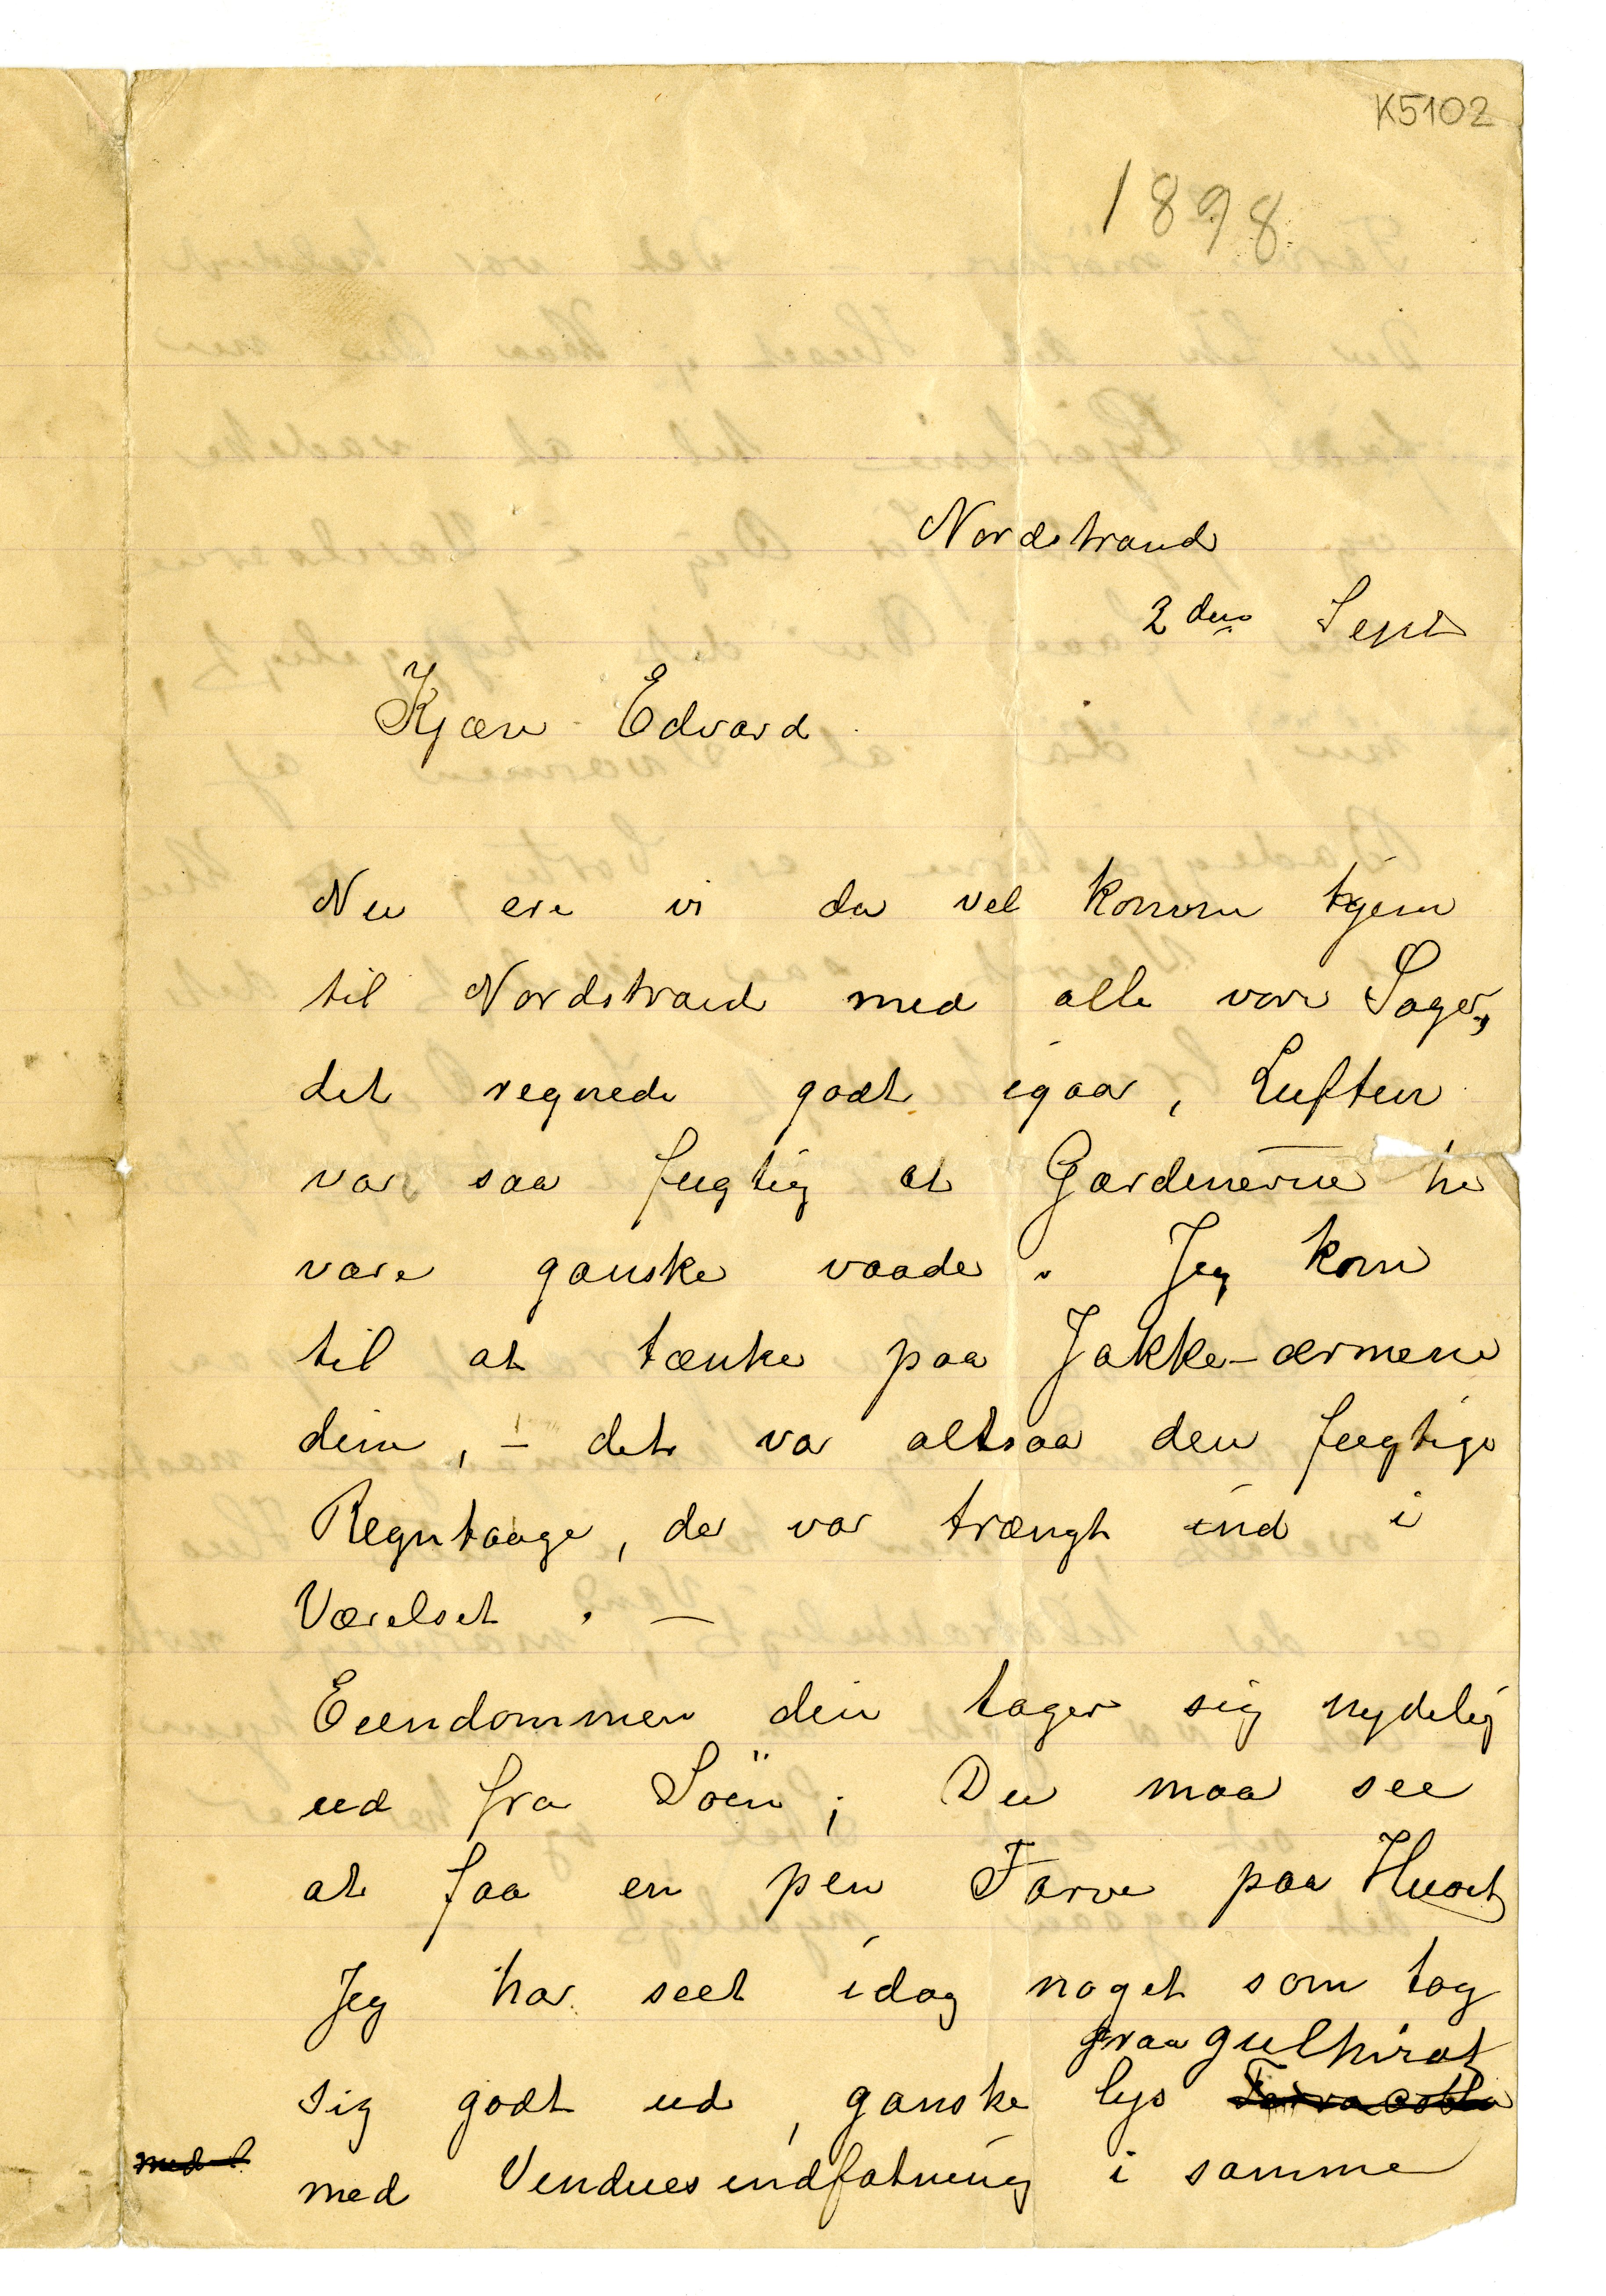 K5102
1898
Nordstrand
2den Sept
Kjære Edvard
Nu ere vi da vel komne hjem
til Nordstrand med alle vore Sager,
det regnede godt igaar, Luften
var saa fugtig at Gardinerne her
vare ganske vaade. Jeg kom
til at tænke paa Jakke-ærmene
dine, – det var altsaa den fugtige
Regntaage, der var trængt ind i
Værelset. –
Eiendommen din tager sig nydelig
ud fra Söen; Du maa see
at faa en pen Farve paa Huset
Jeg har seet idag noget som tog
graa gulhvidt
sig godt ud, ganske lys Terracotta
med
med Vinduesindfatning i samme